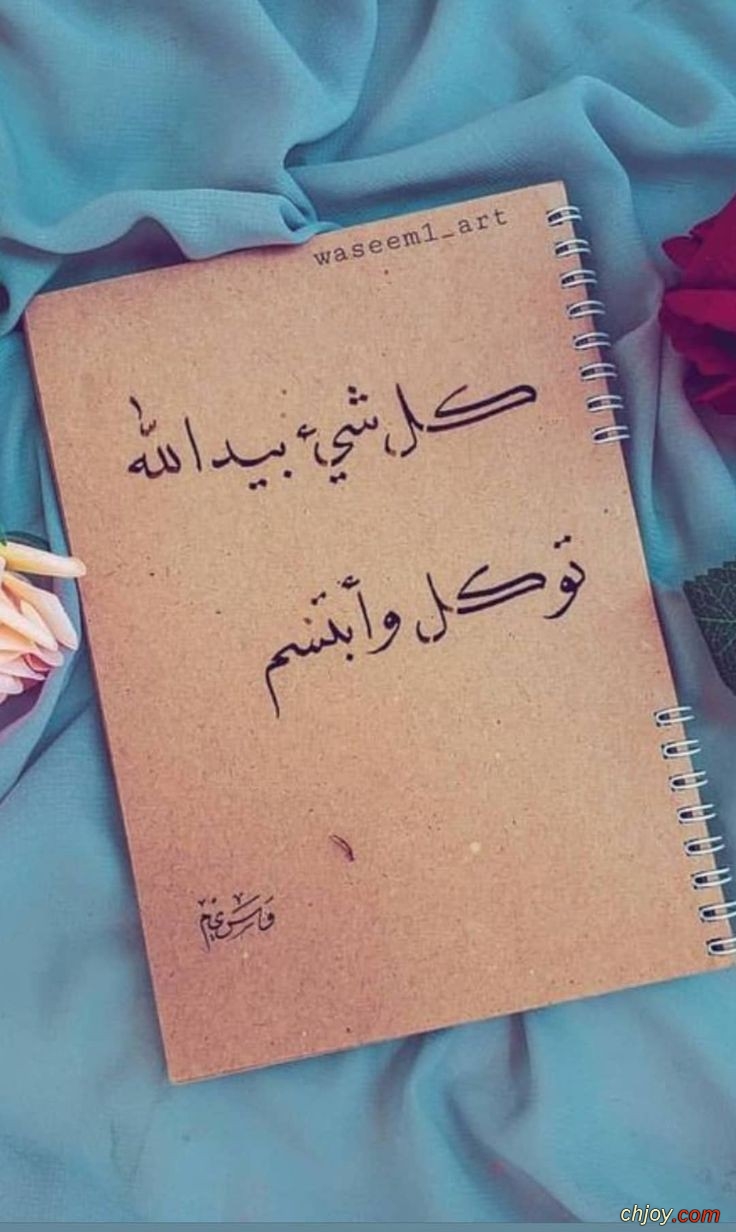 waseem1_art
كل شيء بيد الله
توكل وأبتسم
chjoy.com